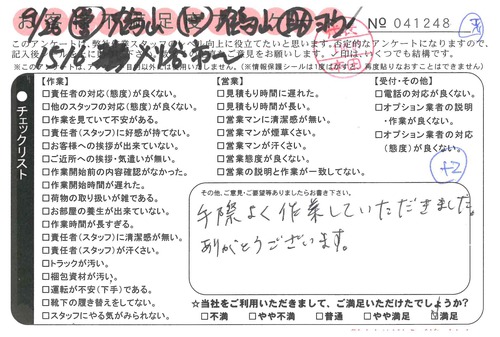 № 041248
このアンケートは、弊社作業スタッフのレベル向上に役立てたいと思います。否定的なアンケートになりますので、
【作業】
□責任者の対応(態度)が良くない。
□他のスタッフの対応(態度)が良くない。
□作業を見ていて不安がある。
□責任者(スタッフ)に好感が持てない。
□お客様への挨拶が出来ていない。
□ご近所への挨拶・気遣いが無い。
□作業開始前の内容確認がなかった。
□作業開始時間が遅れた。
□荷物の取り扱いが雑である。
□お部屋の養生が出来ていない。
□作業時間が長すぎる。
□責任者(スタッフ)に清潔感が無い。
□責任者(スタッフ)が汗くさい。
□トラックが汚い。
□梱包資材が汚い。
□運転が不安(下手)である。
□靴下の履き替えをしてない。
□スタッフにやる気がみられない。
チェックリスト
【営業】
□見積もり時間に遅れた。
□見積もり時間が長い。
□営業マンに清潔感が無い。
□営業マンが煙草くさい。
□営業マンが汗くさい。
□営業態度が良くない。
□営業の説明と作業が一致してない。
【受付・その他】
□電話の対応が良くない。
□オプション業者の説明
・作業が良くない。
□オプション業者の対応
(態度)が良くない。
+2
その他、ご意見・ご要望等ありましたらお書き下さい。
手際よく作業していただきました。
ありがとうございます。
☆当社をご利用いただきまして、ご満足いただけたでしょうか?
□不満 □やや不満 □普通 □やや満足 ☑満足